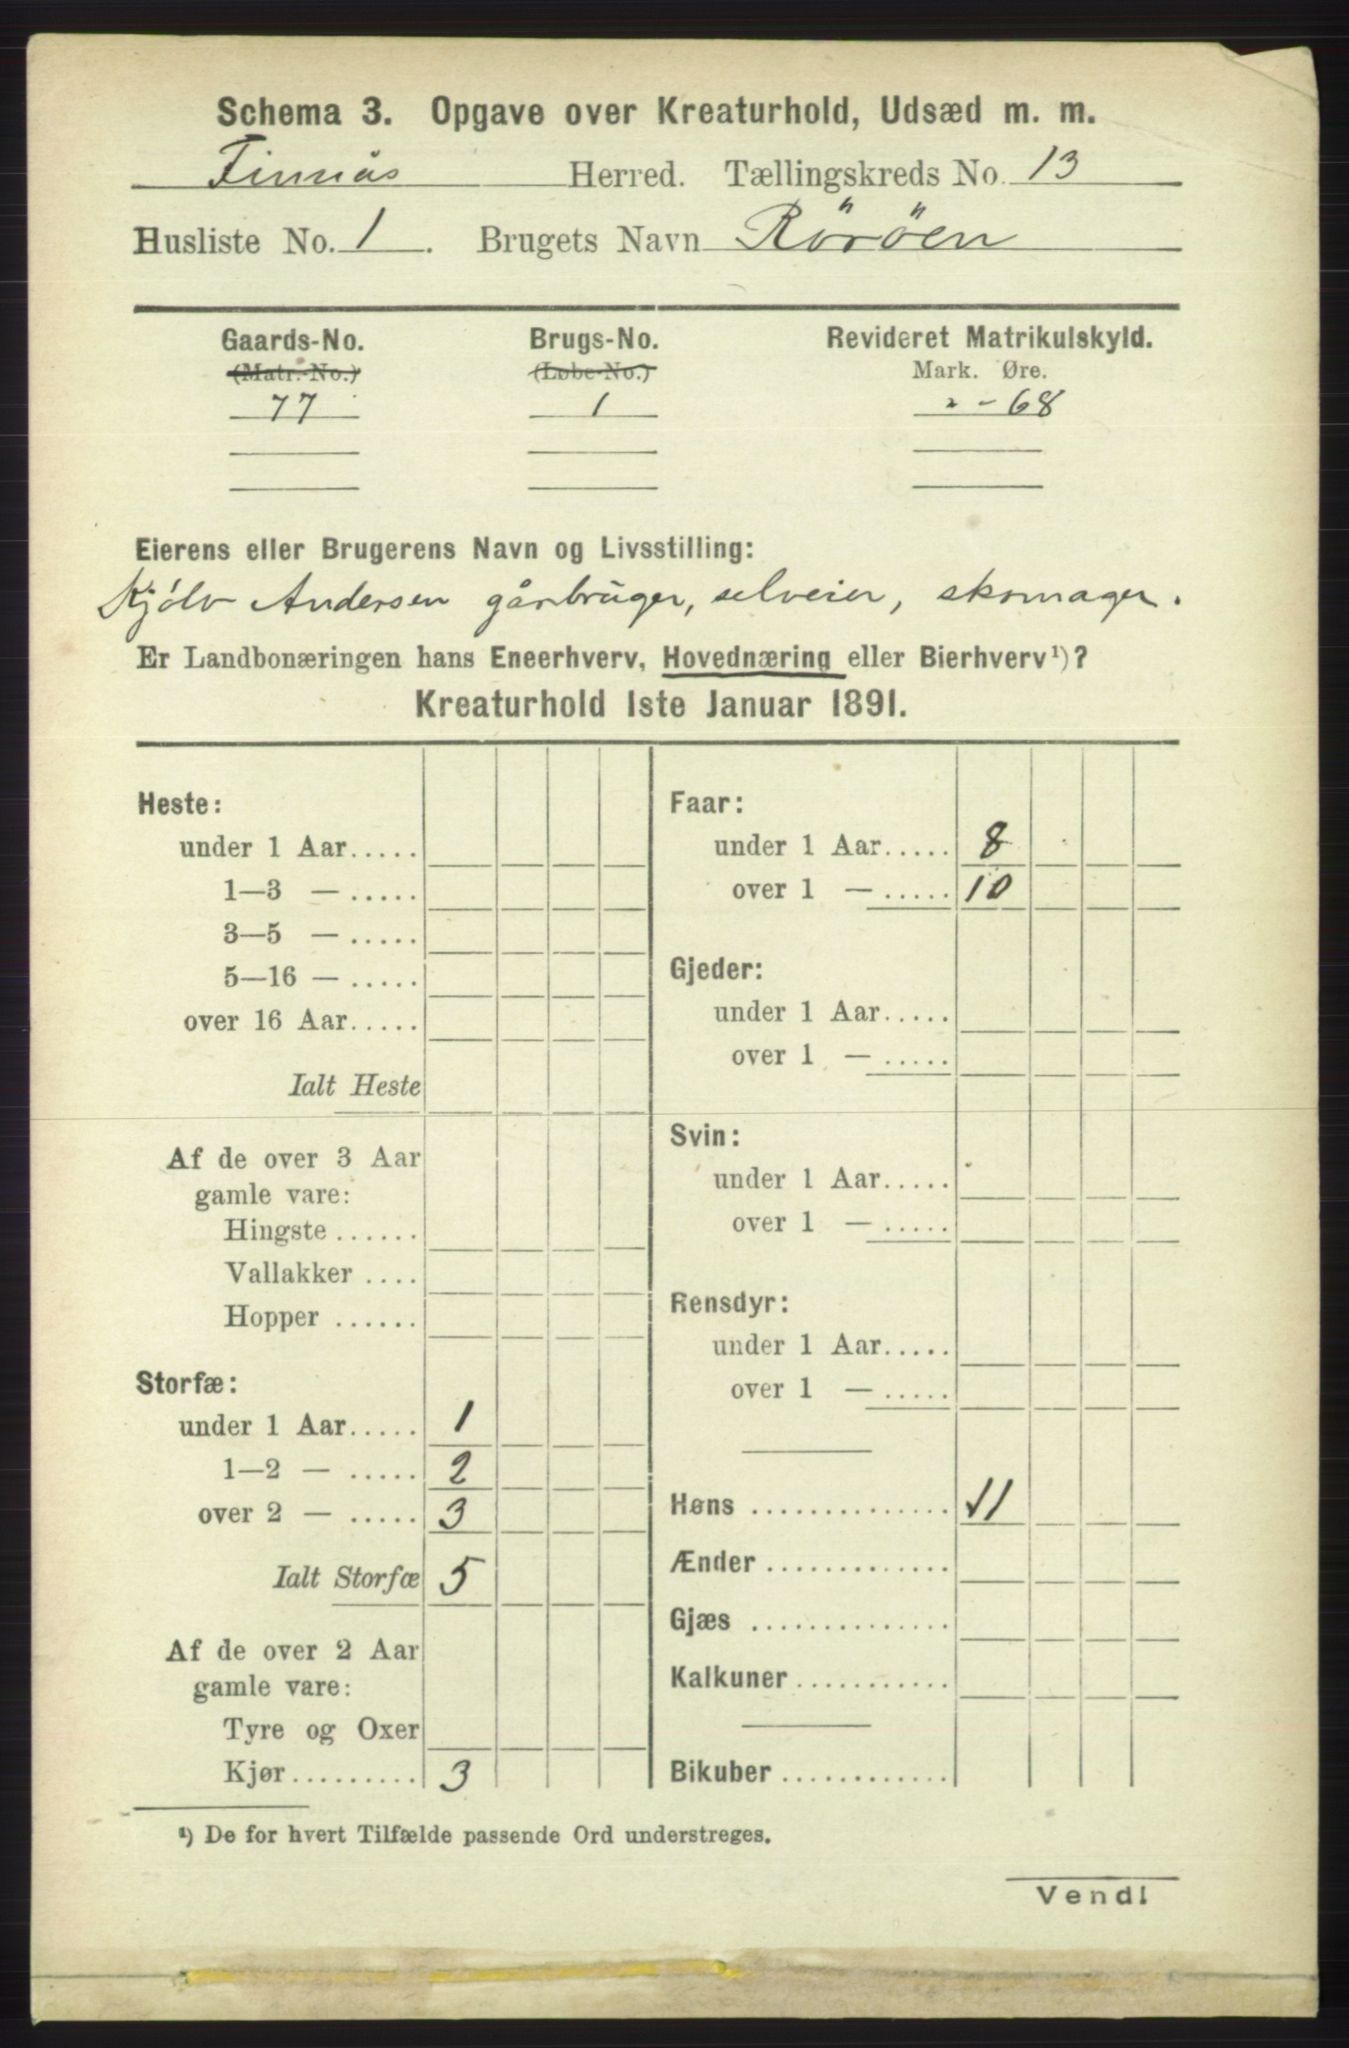 Schema 3. Opgave over Kreaturhold, Udsæd m. m.
Finnås Herred. Tællingskreds No. 13
Husliste No. 1. Brugets Navn Röröen
Gaards-No. Brugs-No. Revideret Matrikulskyld.
(Matr.-No.) (Løbe-No.) Mark. Øre.
77 1 2 - 68
Eierens eller Brugerens Navn og Livsstilling:
Kjölv Andersen gårbruger, selveier, skomager.
Er Landbonæringen hans Eneerhverv, Hovednæring eller Bierhverv¹)?
Kreaturhold 1ste Januar 1891.
Heste:
under 1 Aar.....
1—3 — .....
3—5 — .....
5—16 — .....
over 16 Aar.....
Ialt Heste
Af de over 3 Aar
gamle vare:
Hingste ......
Vallakker ....
Hopper ......
Storfæ:
under 1 Aar..... 1
1—2 — ..... 2
over 2 — ..... 3
Ialt Storfæ 5
Af de over 2 Aar
gamle vare:
Tyre og Oxer
Kjør......... 3
Faar:
under 1 Aar..... 8
over 1 — ..... 10
Gjeder:
under 1 Aar.....
over 1 — .....
Svin:
under 1 Aar.....
over 1 — .....
Rensdyr:
under 1 Aar.....
over 1 — .....
Høns ............... 11
Ænder ..............
Gjæs ...............
Kalkuner ...........
Bikuber .............
¹) De for hvert Tilfælde passende Ord understreges.
Vend!